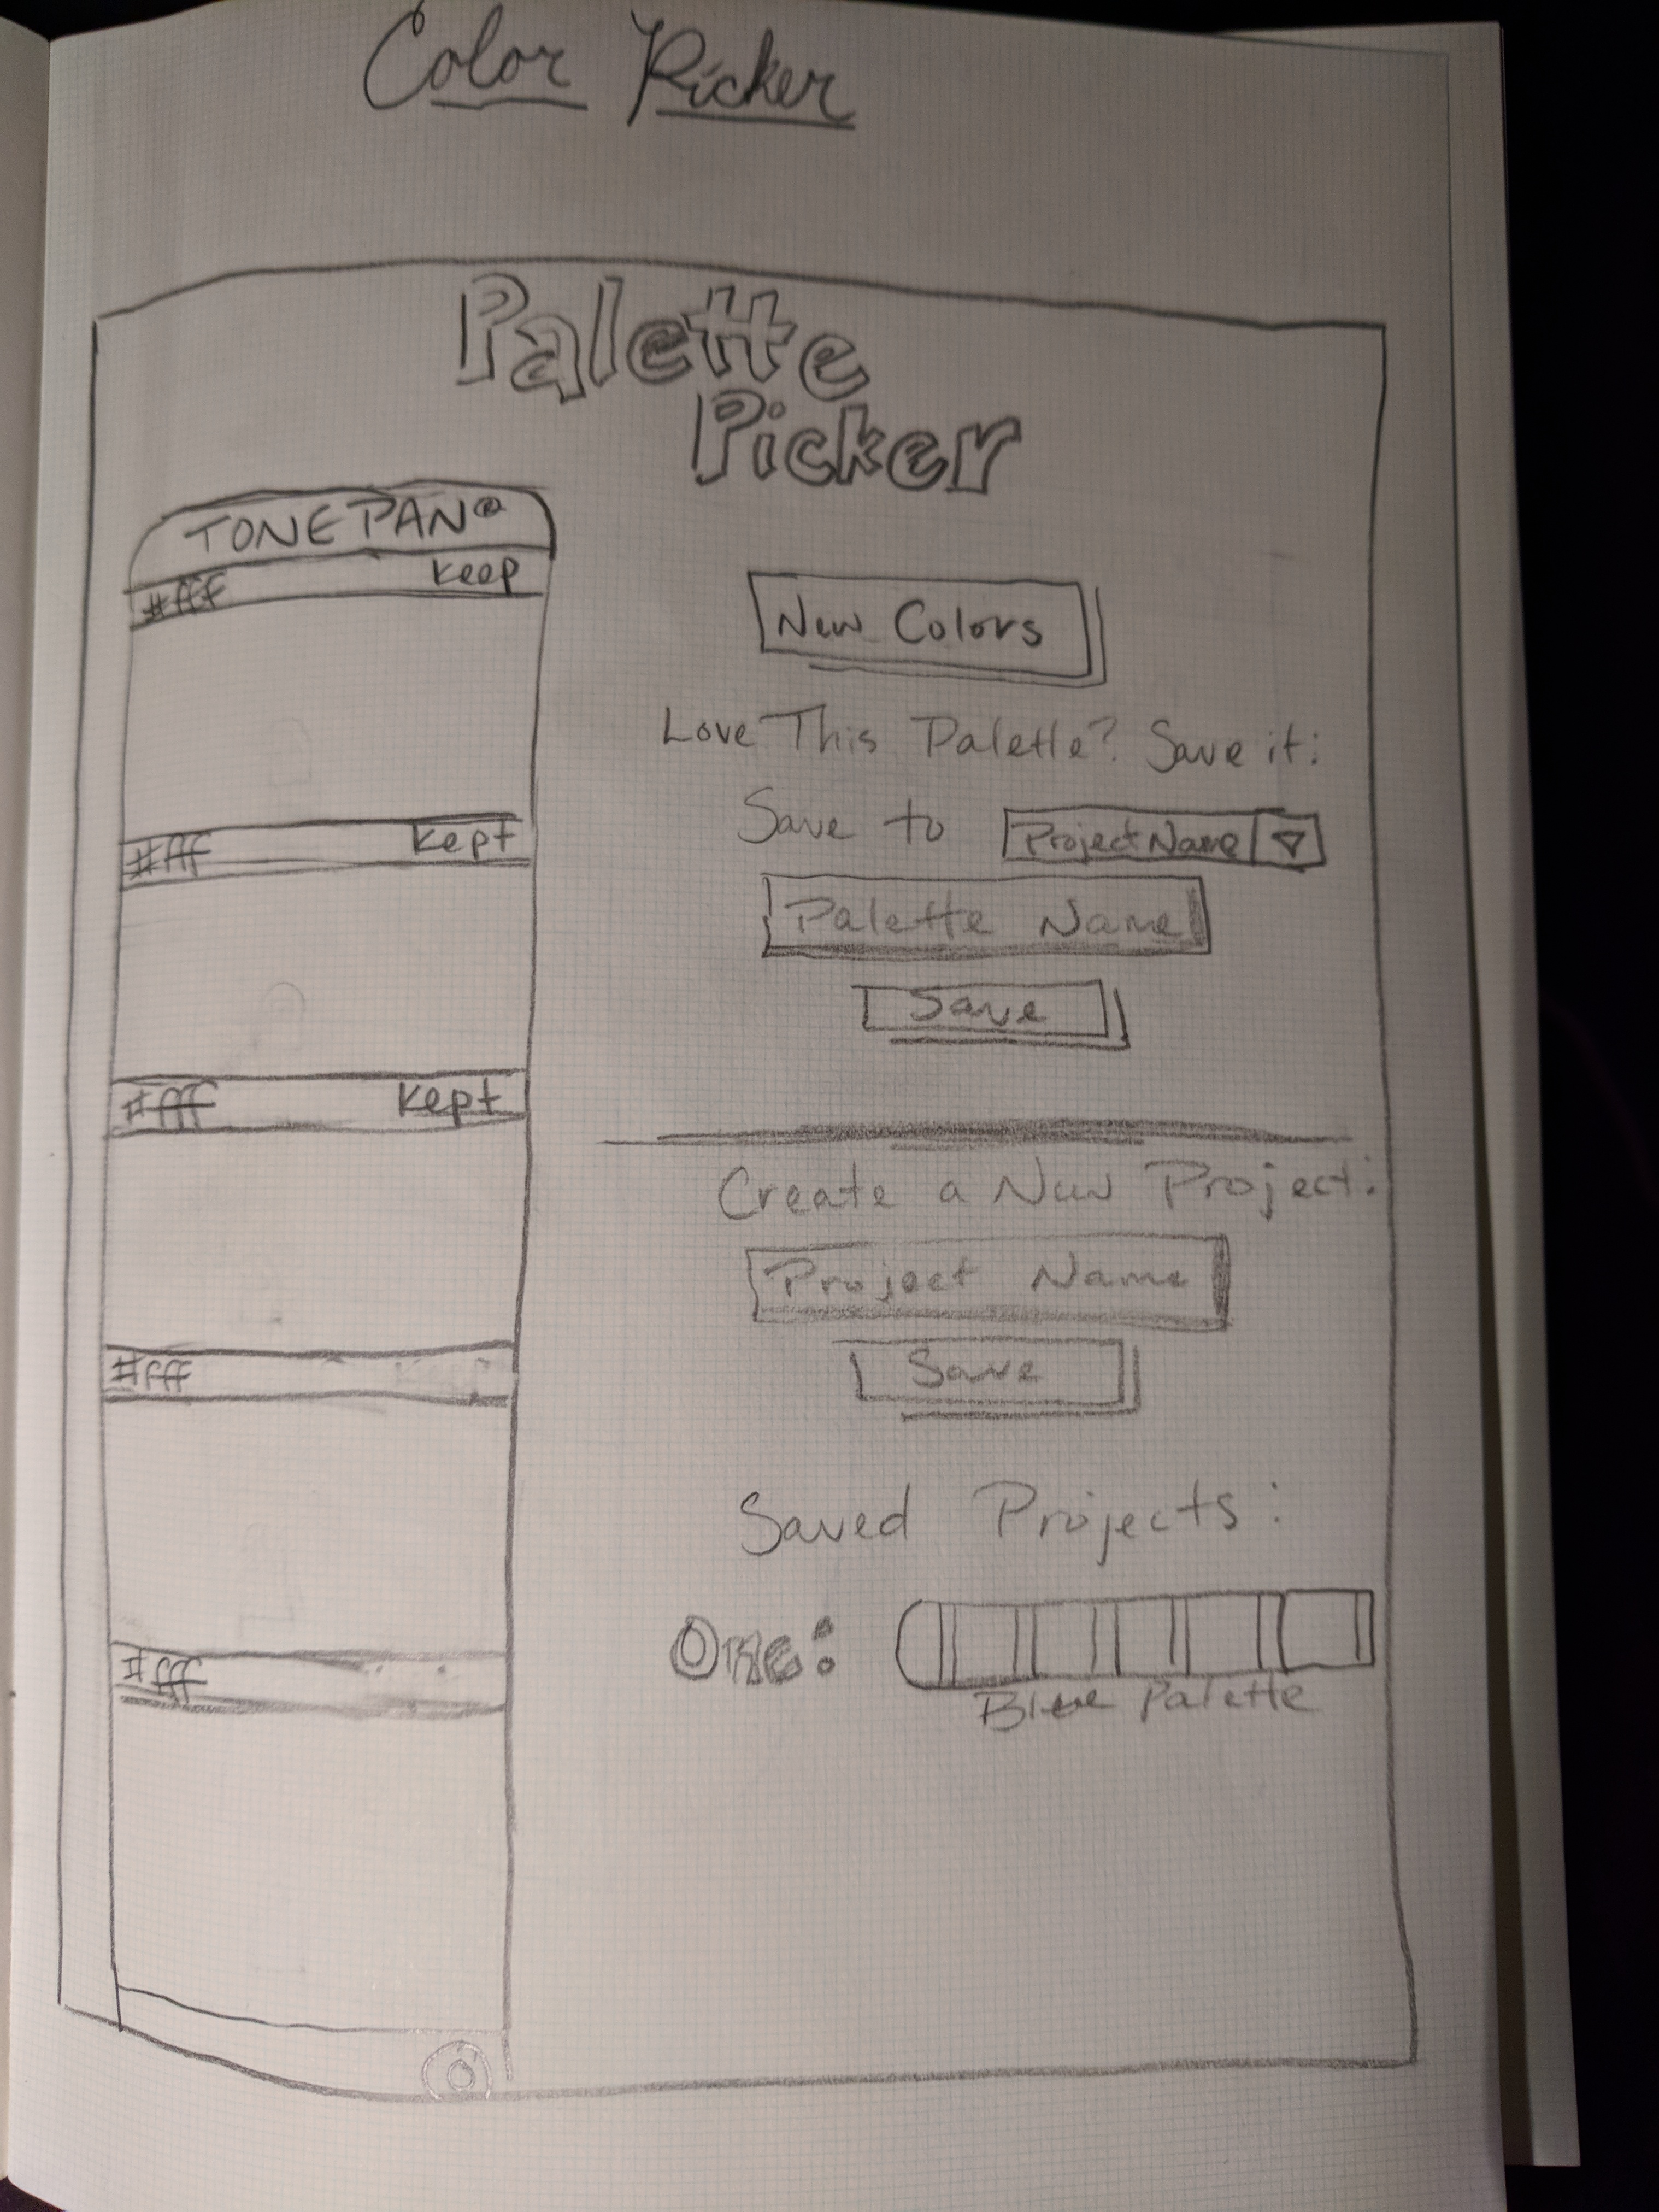 Color Picker
Palette
Picker
TONEPAN®
#fff Keep
#fff Kept
#fff Kept
#fff
#fff
New Colors
Love This Palette? Save it:
Save to Project Name
Palette Name
Save
Create a New Project:
Project Name
Save
Saved Projects:
One:
Blue Palette